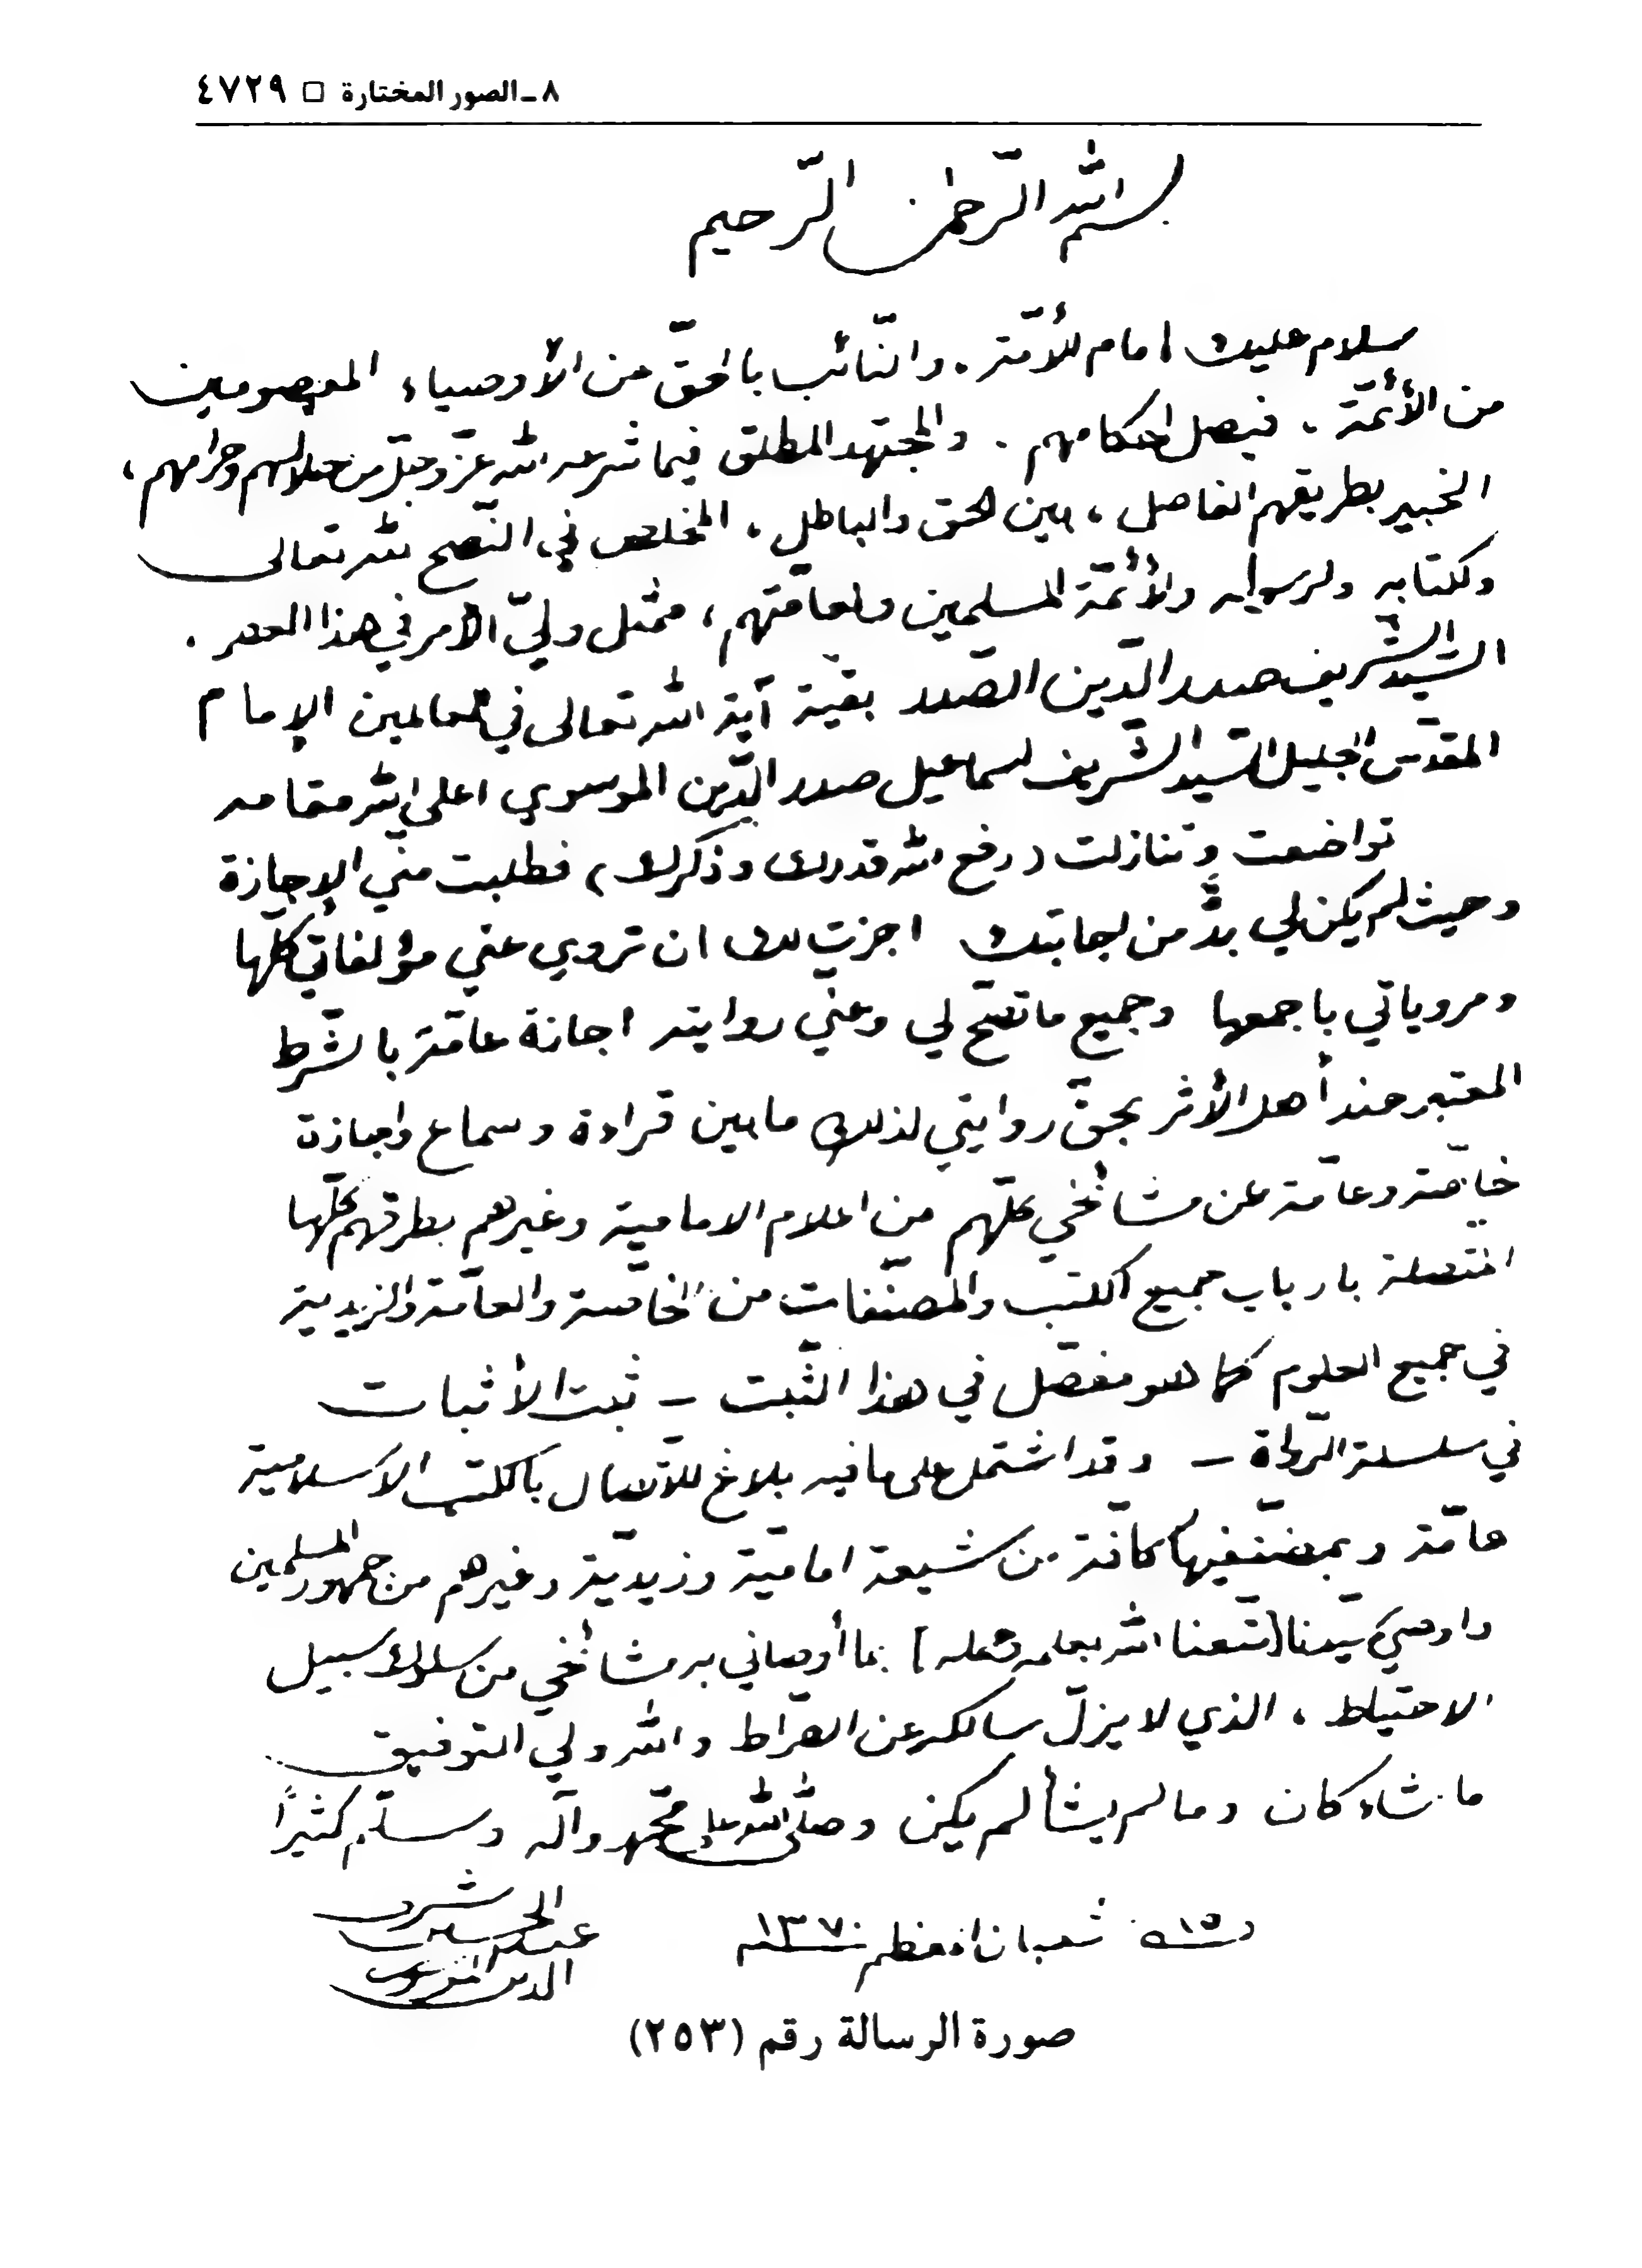 ٨ ـ الصور المختارة □ ٤٧٢٩
بسم الله الرّحمن الرّحيم
سلام عليك امام للأمّة . والنّائب بالحقّ عن الأوصياء المعصومين
من الأئمّة . فيصل احكامهم . والمجتهد المطلق فيما شرعه الله عزّ وجلّ من حلالهم وحرامهم ،
الخبير بطريقهم الفاصل ، بين الحق والباطل ، المخلص في النّصح لله تعالى
ولكتابه ولرسوله ولأئمّة المسلمين ولعامّتهم ، ممثل وليّ الأمر في هذا العصر .
السّيد الشّريف صدر الدّين الصّدر بقيّة آية الله تعالى في العالمين الإمام
المقدّس الجليل السّيد الشّريف اسماعيل صدر الدّين الموسوي اعلى الله مقامه
تواضعت وتنازلت (رفع الله قدرك وذكرك) فطلبت منّي الإجازة
وحيث لم يكن لي بدٌّ من اجابتك اجزت لك ان تروي عنّي مؤلفاتي كلّها
ومروياتي باجمعها وجميع ما تصحّ لي وعنّي روايته اجازة عامّة بالشّرط
المعتبر عند أهل الأثر بحقّ روايتي لذلك ما بين قراءة وسماع واجازة
خاصّة وعامّة عن مشائخي كلّهم من اعلام الامامية وغيرهم بطرقهم كلّها
المتصلة بارباب جميع الكتب والمصنّفات من الخاصّة والعامّة والزيدية
في جميع العلوم كما هو مفصّل في هذا الثّبت ــ ثبت الأثبات
في سلسلة الرّواة ــ وقد اشتمل على ما فيه بلاغ للاتّصال بالكتب الاسلامية
عامّة وبمصنّفيها كافّة من شيعة اماميّة وزيديّة وغيرهم من جمهور المسلمين
واوصي سيّدنا [نفعنا الله بعلمه وعمله] بما أوصاني به مشائخي من سلوك سبيل
الاحتياط ، الذي لا يزلّ سالكه عن الصّراط والله وليّ التوفيق
ما شاء كان وما لم يشأ لم يكن وصلّى الله على محمّد وآله وسلّم كثيرًا
١٥ شعبان المعظم سنة ١٣٧٠
عبد الحسين شرف
الدين الموسوي
صورة الرسالة رقم (٢٥٣)